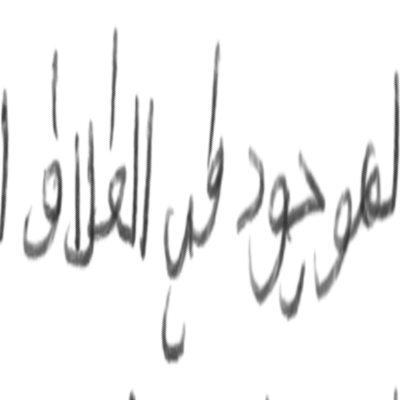 لموجود في الغلاف ا